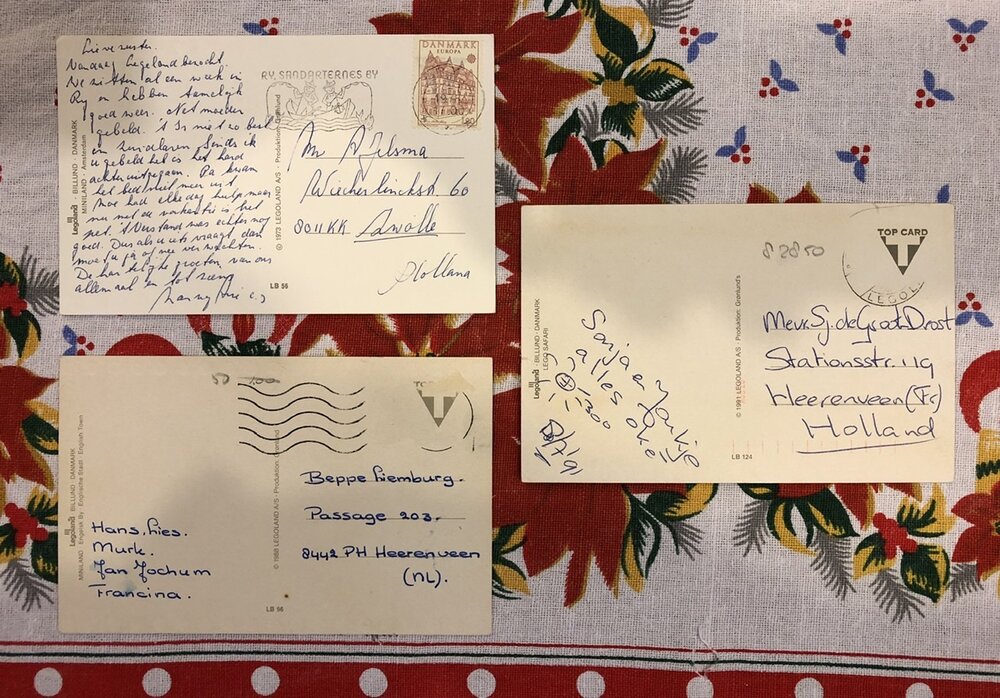 Lieve zuster.
Vandaag Legoland bezocht.
We zitten al een week in
Ry en hebben tamelijk
goed weer. Met moeder
gebeld. 't Is niet zo best
Sinds ik
u gebeld heb is het hard
achteruitgegaan. Pa kwam
het bed niet meer uit
had elke dag hulp maar
nu met de vakantie is het
niet. 't Verstand was echter nog
goed. Dus als u iets vraagt dan
moet u ja of nee verwachten.
De hartelijke groeten van ons
allemaal en tot ziens
Legoland · BILLUND · DANMARK
MINILAND · Amsterdam
© 1973 LEGOLAND A/S · Produktion: Grønlund
RY, SANDARTERNES BY
DANMARK
EUROPA
Wiecherlinckstr. 60
8011KK Zwolle
Holland
LB 56
TOP CARD
T
LEGOL
8 2850
Legoland · BILLUND · DANMARK
LEGO SAFARI
© 1991 LEGOLAND A/S · Produktion: Grønlund's
Sonja en
alles oké!!
Mevr. Sj. de Graaf-Drost
Stationsstr. 119
Heerenveen (Fr)
Holland
LB 124
T
Legoland · BILLUND · DANMARK
MINILAND · Engelsk By · Englische Stadt · English Town
© 1988 LEGOLAND A/S · Produktion: Grønlund
Hans. Lies.
Murk.
Jan Jochum
Francina.
Beppe Liemburg.
Passage 203.
8442 PH Heerenveen
(NL).
LB 96